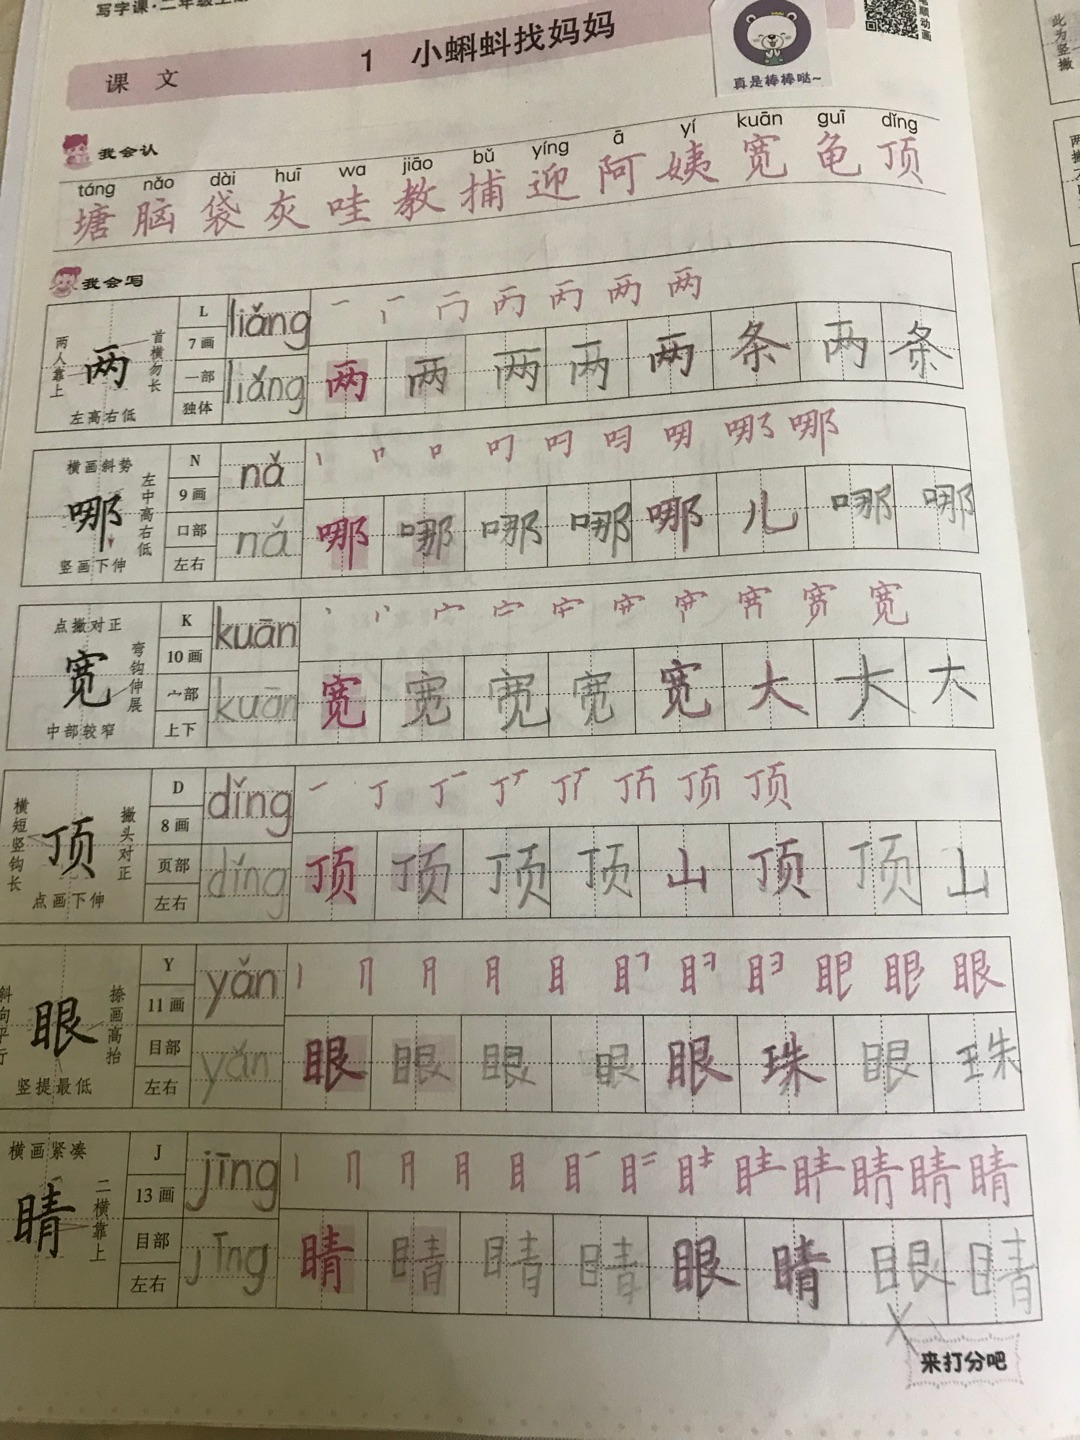 写字课·二年级上册
课文
1 小蝌蚪找妈妈
真是棒棒哒~
笔顺动画
我会认
táng nǎo dài huī wa jiāo bǔ yíng ā yí kuān guī dǐng
塘 脑 袋 灰 哇 教 捕 迎 阿 姨 宽 龟 顶
我会写
两人靠上
两
首横勿长
左高右低
L
7画
一部
独体
liǎng
liǎng
两 两 两 两 两 条 两 条
横画斜势
哪
左中高右低
竖画下伸
N
9画
口部
左右
nǎ
nǎ
哪 哪 哪 哪 哪 儿 哪 哪
点撇对正
宽
弯钩伸展
中部较窄
K
10画
宀部
上下
kuān
kuān
宽 宽 宽 宽 宽 大 大 大
横短竖钩长
顶
撇头对正
点画下伸
D
8画
页部
左右
dǐng
dǐng
顶 顶 顶 顶 山 顶 顶 山
斜向平行
眼
捺画高抬
竖提最低
Y
11画
目部
左右
yǎn
yǎn
眼 眼 眼 眼 眼 珠 眼 珠
横画紧凑
睛
二横靠上
J
13画
目部
左右
jīng
jīng
睛 睛 睛 睛 眼 睛 眼 睛
来打分吧